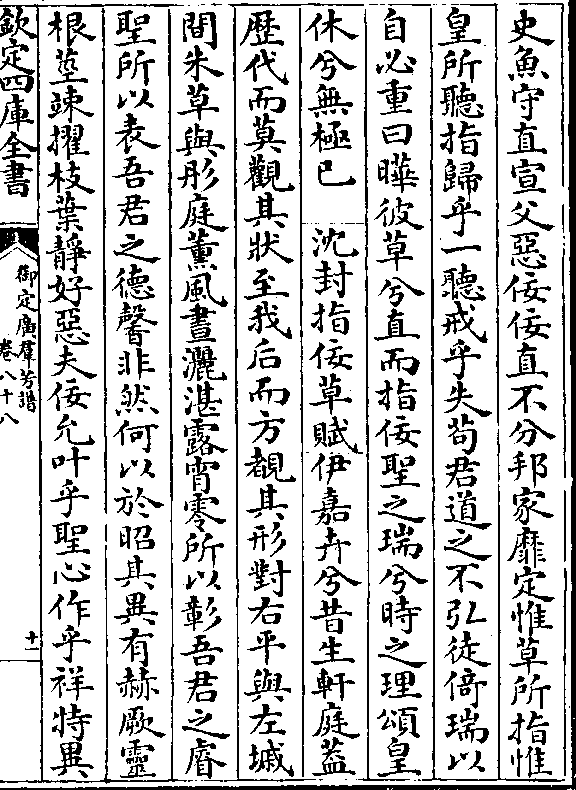 史魚守直宣父惡佞佞直不分邦家靡定惟草所指惟
皇所聽指歸乎一聽戒乎失苟君道之不弘徒倚瑞以
自必重曰曄彼草兮直而指佞聖之瑞兮時之理頌皇
休兮無極已　沈封指佞草賦伊嘉卉兮昔生軒庭葢
歴代而莫觀其狀至我后而方覩其形對右平與左墄
間朱草與彤庭薰風晝灑湛露宵零所以彰吾君之睿
聖所以表吾君之德馨非然何以於昭其異有赫厥靈
根莖竦擢枝葉靜好惡夫佞允叶乎聖心作乎祥特異
欽定四庫全書
御定廣羣芳譜
卷八十八
十一